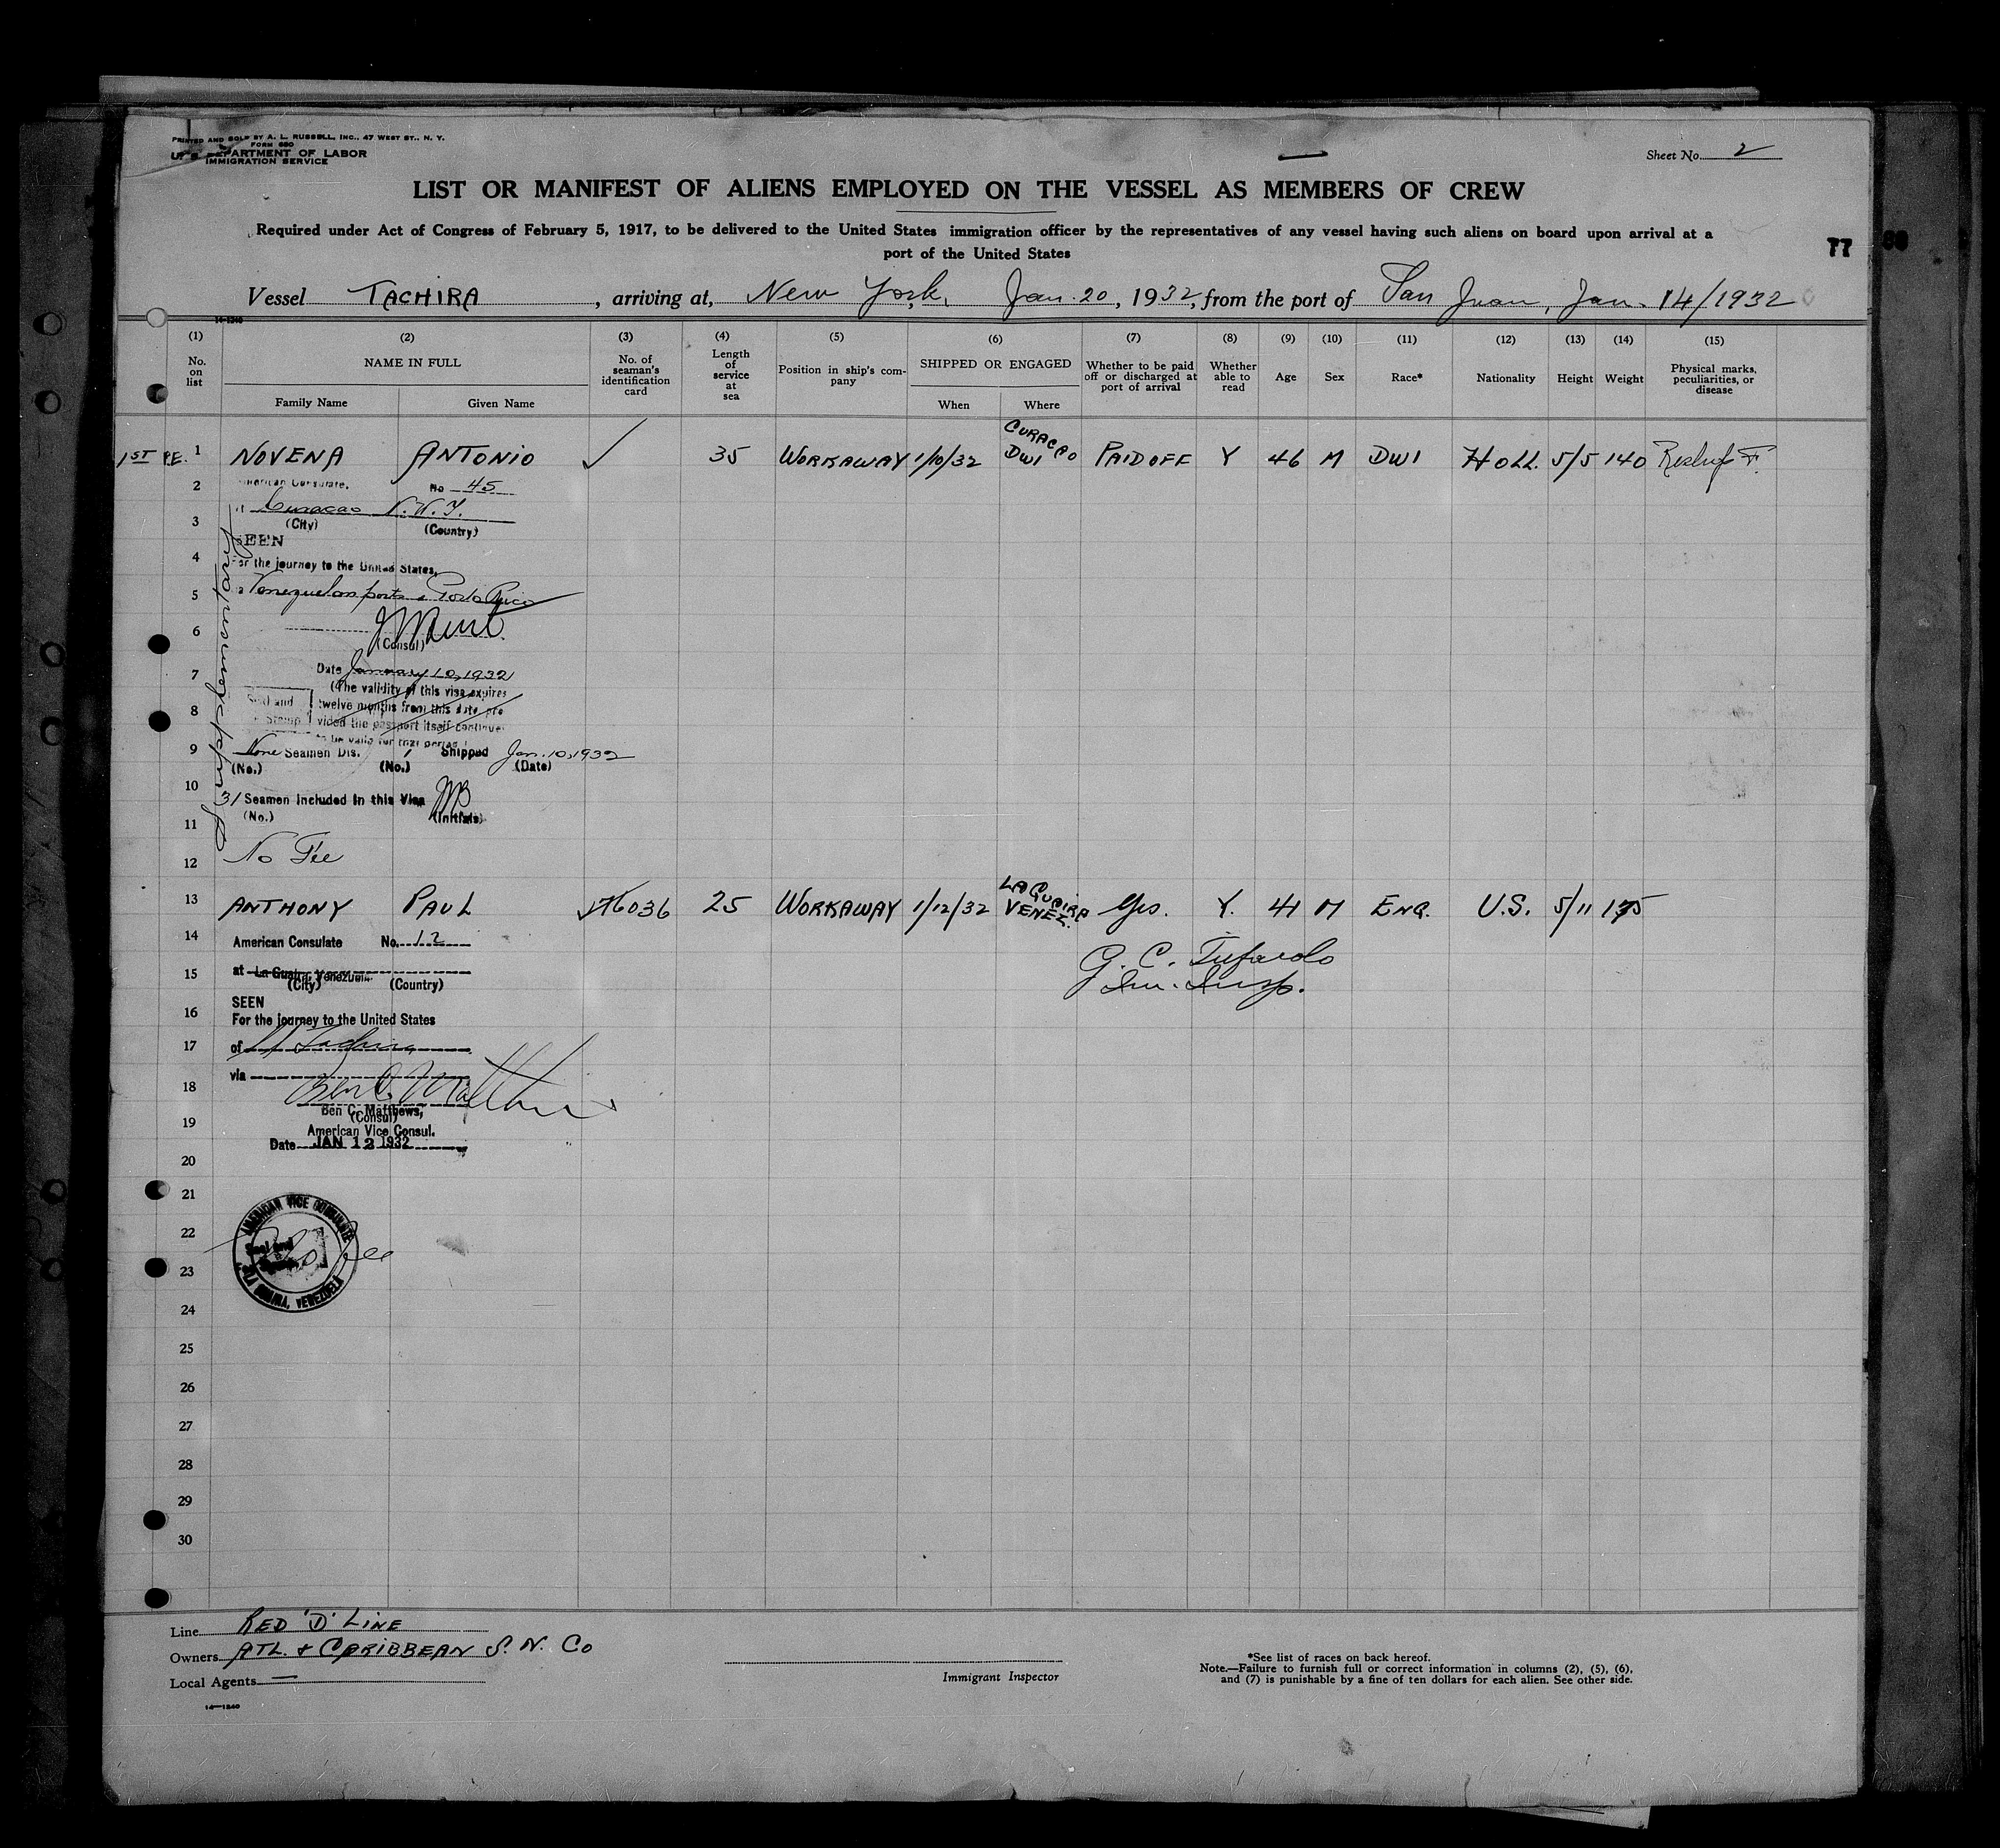 PRINTED AND SOLD BY A. L. RUSSELL, INC., 47 WEST ST., N. Y.
FORM 680
U. S. DEPARTMENT OF LABOR
IMMIGRATION SERVICE
Sheet No. 2
LIST OR MANIFEST OF ALIENS EMPLOYED ON THE VESSEL AS MEMBERS OF CREW
Required under Act of Congress of February 5, 1917, to be delivered to the United States immigration officer by the representatives of any vessel having such aliens on board upon arrival at a
port of the United States
77
Vessel TACHIRA, arriving at, New York, Jan. 20, 1932, from the port of San Juan, Jan. 14/1932
14-1240
(1) (2) (3) (4) (5) (6) (7) (8) (9) (10) (11) (12) (13) (14) (15)
No. on list
NAME IN FULL
Family Name Given Name
No. of seaman's identification card
Length of service at sea
Position in ship's company
SHIPPED OR ENGAGED
When Where
Whether to be paid off or discharged at port of arrival
Whether able to read
Age
Sex
Race*
Nationality
Height
Weight
Physical marks, peculiarities, or disease
1ST P.E. 1 NOVENA ANTONIO 35 WORKAWAY 1/10/32 CURACAO DWI PAID OFF Y 46 M DWI HOLL. 5/5 140
2 American Consulate, No 45
3 Curacao N.W.I.
(City) (Country)
SEEN
4 For the journey to the United States,
5 Venezuelan ports & Porto Rico
6
(Consul)
7 Date January 10, 1932
(The validity of this visa expires
8 twelve months from this date pro
vided the passport itself continues
to be valid for that period
Seal and
Stamp
9 None Seamen Dis. Shipped Jan. 10, 1932
(No.) (No.) (Date)
10
31 Seamen Included in this Visa
(No.) (Initials)
11
12 No Fee
13 ANTHONY PAUL 76036 25 WORKAWAY 1/12/32 LA GUAIRA VENEZ. Yes. Y. 41 M ENG. U.S. 5/11 175
14 American Consulate No. 12
15 at La Guaira, Venezuela.
(City) (Country)
SEEN
16 For the journey to the United States
17 of Tachira
via
18 Ben C. Matthews
Ben C. Matthews,
(Consul)
19 American Vice Consul.
Date JAN 12 1932
20
21
AMERICAN VICE CONSULATE
22
Seal and
No Fee
23
LA GUAIRA, VENEZUELA
24
25
26
27
28
29
30
Line RED 'D' LINE
Owners ATL. & CARIBBEAN S. N. CO
Local Agents —
14—1240
Immigrant Inspector
*See list of races on back hereof.
Note.—Failure to furnish full or correct information in columns (2), (5), (6),
and (7) is punishable by a fine of ten dollars for each alien. See other side.